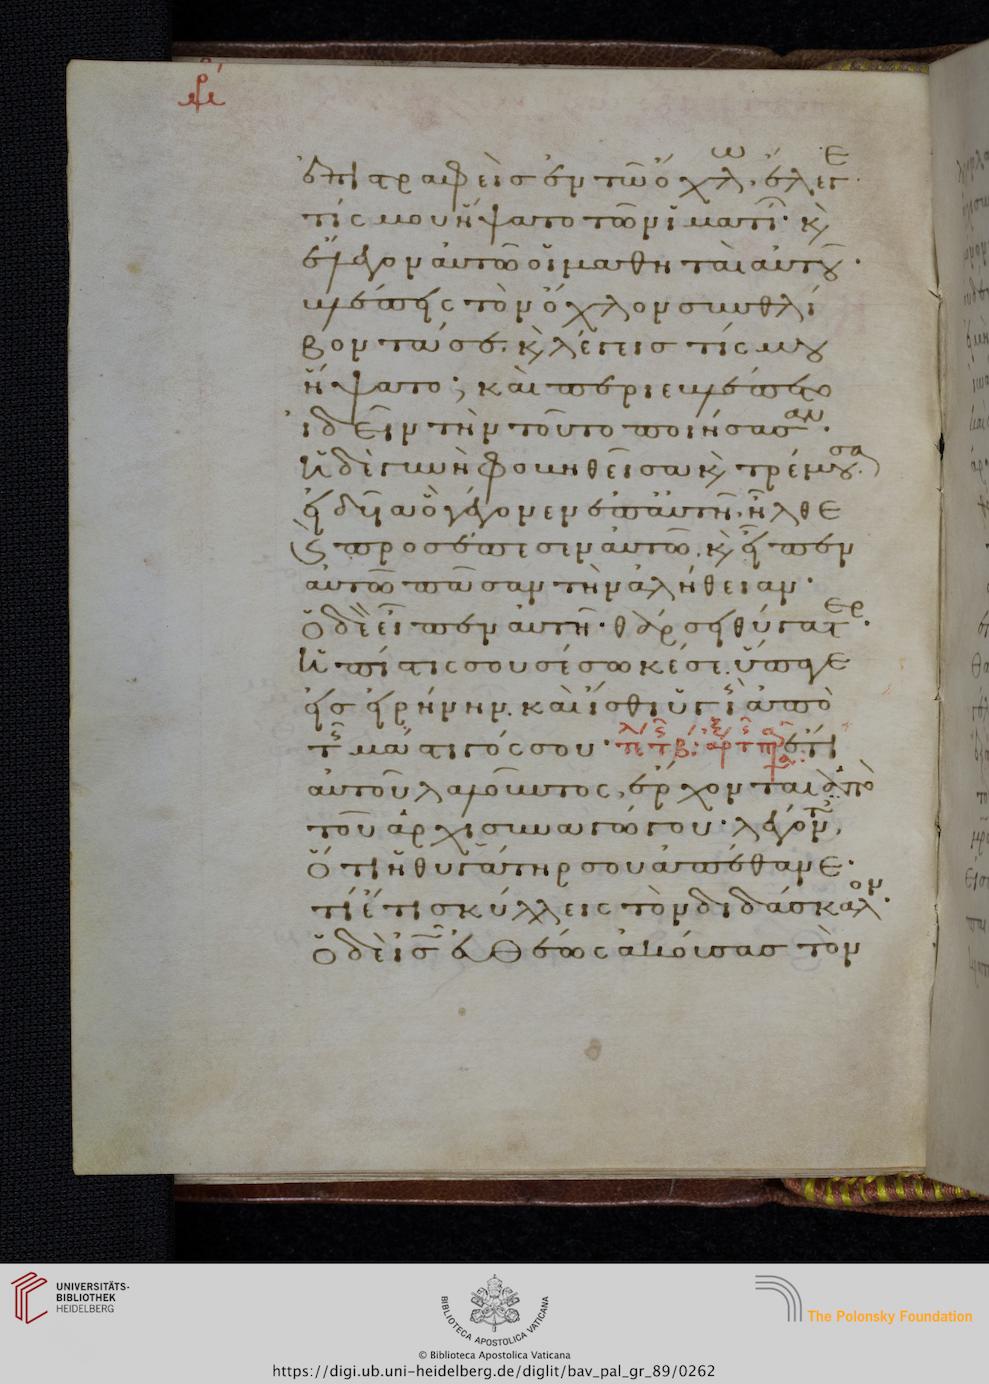 ἐπιστραφεὶς ἐν τῶ ὄχλω, ἔλεγε
τίς μου ἥψατο τῶν ἱματί· κ(αὶ)
ἔλεγον αὐτῶ οἱ μαθηταὶ αὐτοῦ·
βλέπεις τὸν ὄχλον συνθλί
βοντά σε. κ(αὶ) λέγεις τίς μου
ἥψατο; καὶ περιεβλέπετο
ἰδεῖν τὴν τοῦτο ποιήσασαν·
ἡ δὲ γυνὴ φοβηθεῖσα κ(αὶ) τρέμουσα.
εἰδυῖα ὃ γέγονεν ἐπ' αὐτῆ, ἦλθε
κ(αὶ) προσέπεσεν αὐτῶ, κ(αὶ) εἶπεν
αὐτῶ πᾶσαν τὴν ἀλήθειαν·
ὁ δὲ εἶπεν αὐτῆ· θάρσει θύγατερ·
ἡ πίστις σου σέσωκέ σε. ὕπαγε
εἰς εἰρήνην. καὶ ἴσθι ὑγιὴς ἀπὸ
τῆς μάστιγός σου· ἔτι
αὐτοῦ λαλοῦντος, ἔρχονται ἀπὸ
τοῦ ἀρχισυναγώγου· λέγοντες,
ὅτι ἡ θυγάτηρ σου ἀπέθανε·
τί ἔτι σκύλλεις τὸν διδάσκαλον·
ὁ δὲ ι(ησοῦ)ς εὐθέως ἀκούσας τὸν
UNIVERSITÄTS-
BIBLIOTHEK
HEIDELBERG
BIBLIOTECA APOSTOLICA VATICANA
The Polonsky Foundation
© Biblioteca Apostolica Vaticana
https://digi.ub.uni-heidelberg.de/diglit/bav_pal_gr_89/0262